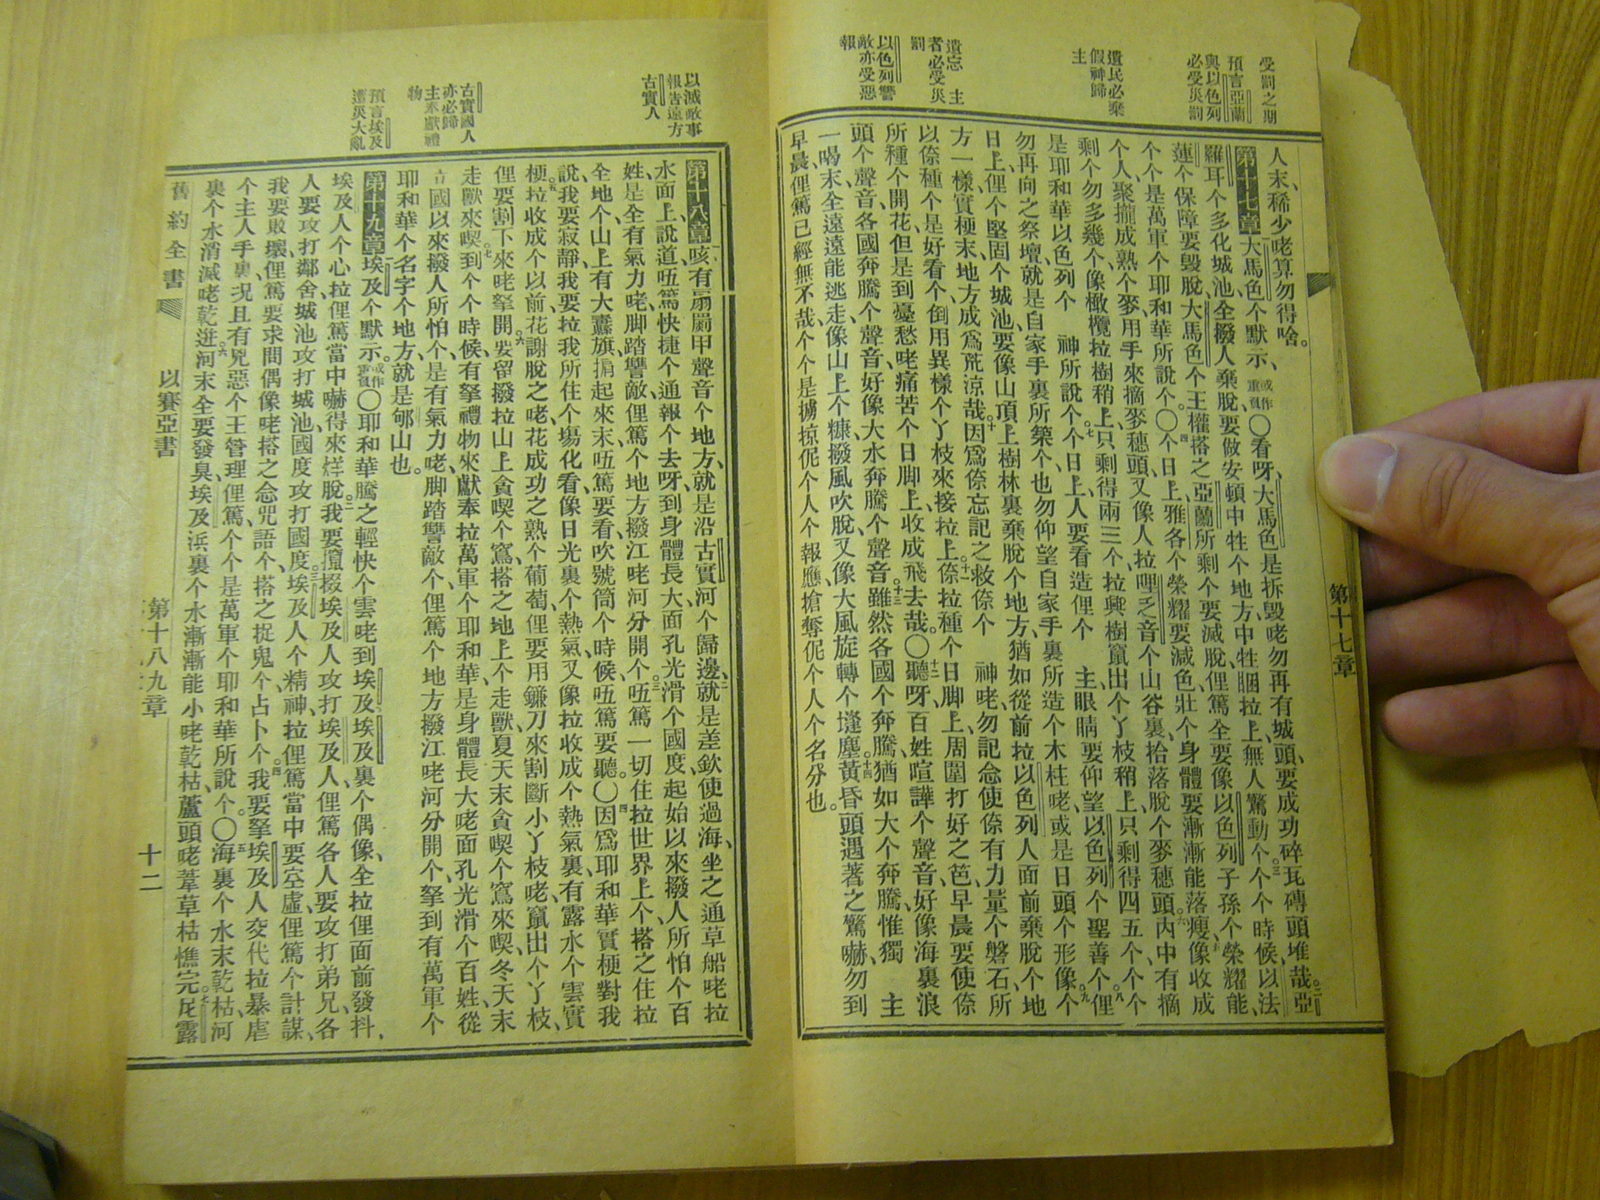 受罰之期
預言亞蘭
與以色列
必受災罰
遺民必棄
假神歸
主
遺忘 主
者必受災
罰
以色列讐
敵亦受惡
報
人末、稀少咾算勿得啥。
第十七章 大馬色个默示、或作重負〇看呀、大馬色是拆毀咾勿再有城頭、要成功碎瓦磚頭堆哉。二亞
羅耳个多化城池、全撥人棄脫、要做安頓中牲个地方、中牲𥇲拉上、無人驚動个。三个个時候、以法
蓮个保障要毀脫、大馬色个王權、搭之亞蘭所剩个要滅脫、俚篤全要像以色列子孫个榮耀能、
个个是萬軍个耶和華所說个。〇四个日上、雅各个榮耀要減色、壯个身體要漸漸能落瘦、五像收成
个人聚攏成熟个麥、用手來摘麥穗頭、又像人拉哩乏音个山谷裏、拾落脫个麥穗頭、六內中有摘
剩个勿多幾个、像橄欖拉樹稍上、只剩得兩三个、拉興樹竄出个丫枝稍上、只剩得四五个、个个
是耶和華以色列个 神所說个。七个日上、人要看造俚个 主、眼睛要仰望以色列个聖善个。八俚
勿再向之祭壇、就是自家手裏所築个、也勿仰望自家手裏所造个木柱咾、或是日頭个形像。九个
日上、俚个堅固个城池、要像山頂上樹林裏棄脫个地方、猶如從前拉以色列人面前棄脫个地
方一樣、實梗末、地方成爲荒涼哉。十因爲倷忘記之救倷个 神咾、勿記念使倷有力量个磐石、所
以倷種个是好看个、倒用異樣个丫枝來接拉上、十一倷拉種个日脚上、周圍打好之笆、早晨要使倷
所種个開花、但是到憂愁咾痛苦个日脚上、收成飛去哉。〇十二聽呀、百姓喧譁个聲音、好像海裏浪
頭个聲音、各國奔騰个聲音、好像大水奔騰个聲音。十三雖然各國个奔騰、猶如大个奔騰、惟獨 主
一喝末、全遠遠能逃走、像山上个糠撥風吹脫、又像大風旋轉个塳塵。十四黃昏頭遇著之驚嚇、勿到
早晨、俚篤已經無不哉、个个是擄掠伲个人个報應、搶奪伲个人个名分也。
第十七章
以滅敵事
報告遠方
古實人
古實國人
亦必歸
主來獻禮
物
預言埃及
遭災大亂
第十八章 咳、有扇扇甲聲音个地方、就是沿古實河个歸邊、二就是差欽使過海、坐之通草船咾拉
水面上、說道、㕶篤快捷个通報个、去呀、到身體長大、面孔光滑个國度、起始以來撥人所怕个百
姓、是全有氣力咾、脚踏讐敵、俚篤个地方撥江咾河分開个。三㕶篤一切住拉世界上个、搭之住拉
全地个、山上有大纛旗搧起來末、㕶篤要看、吹號筒个時候、㕶篤要聽。〇四因爲耶和華實梗對我
說、我要寂靜、我要拉我所住个塲化看、像日光裏个熱氣、又像拉收成个熱氣裏、有露水个雲、五實
梗拉收成个以前、花謝脫之咾、花成功之熟个葡萄、俚要用鐮刀來割斷小丫枝咾、竄出个丫枝、
俚要割下來咾拏開。六要留撥拉山上貪喫个窩搭之地上个走獸、夏天末貪喫个窩來喫、冬天末
走獸來喫。七到个个時候、有拏禮物來獻奉拉萬軍个耶和華、是身體長大咾面孔光滑个百姓、從
立國以來撥人所怕个、是有氣力咾、脚踏讐敵个、俚篤个地方撥江咾河分開个、拏到有萬軍个
耶和華个名字个地方、就是郇山也。
第十九章 埃及个默示。或作重負〇耶和華騰之輕快个雲咾到埃及、埃及裏个偶像、全拉俚面前發抖、
埃及人个心、拉俚篤當中嚇得來烊脫。二我要攛掇埃及人攻打埃及人、俚篤各人要攻打弟兄、各
人要攻打鄰舍、城池攻打城池、國度攻打國度。三埃及人个精神、拉俚篤當中要空虛、俚篤个計謀、
我要敗壞、俚篤要求問偶像咾、搭之念咒語个、搭之捉鬼个、占卜个。四我要拏埃及人交代拉暴虐
个主人手裏、况且有兇惡个王管理俚篤、个个是萬軍个耶和華所說个。〇五海裏个水末乾枯、河
裏个水消滅咾乾。六迸河末全要發臭、埃及浜裏个水、漸漸能小咾乾枯、蘆頭咾葦草枯憔完。七尼露
舊約全書 以賽亞書 第十八九章 十二